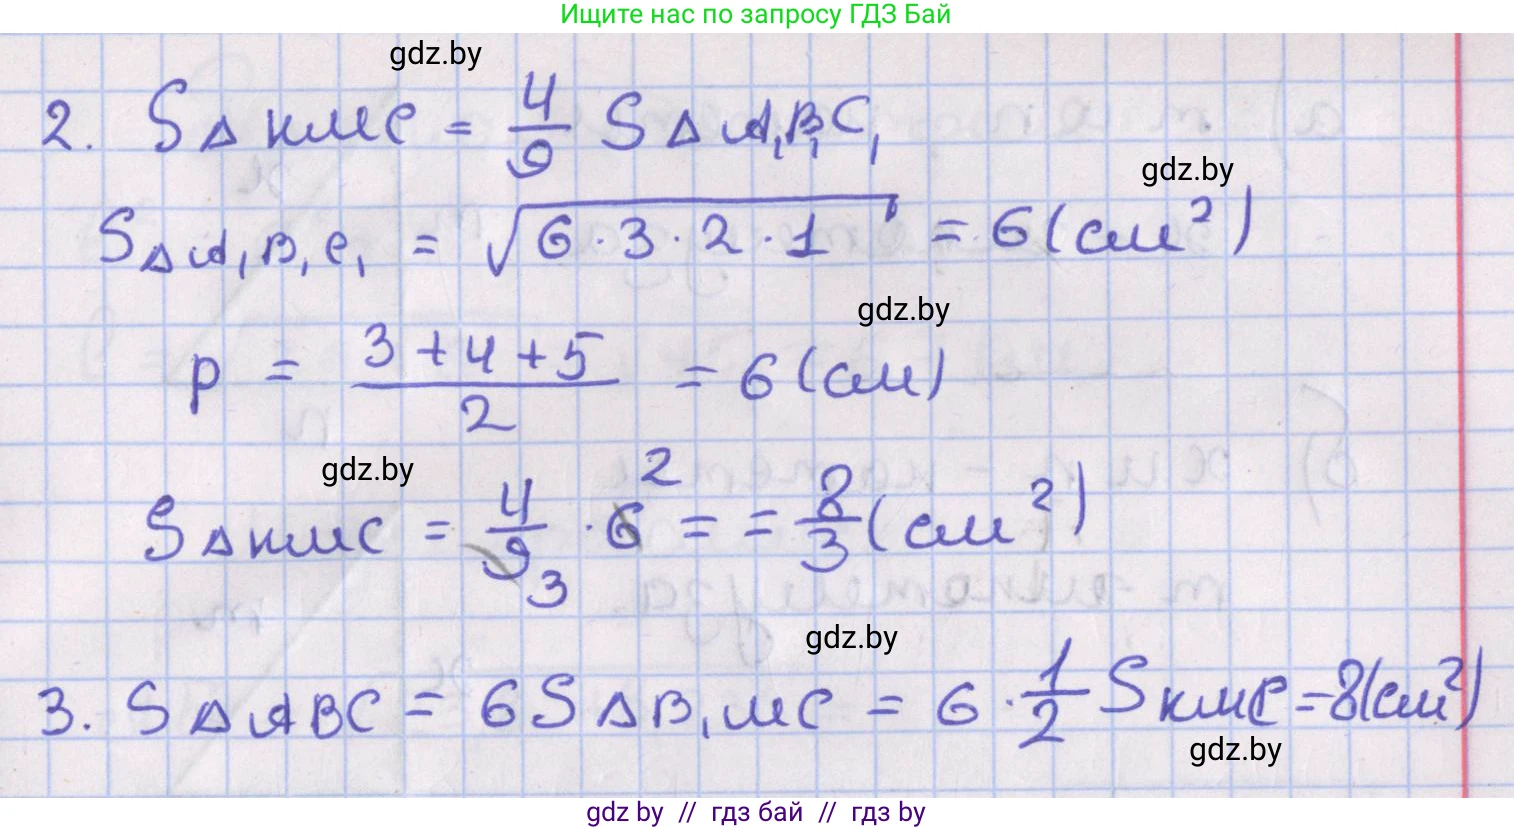 Ищите нас по запросу ГДЗ Бай
gdz.by
2. S△KMC = 4/9 S△A₁B₁C₁
gdz.by
S△A₁B₁C₁ = √(6·3·2·1) = 6 (см²)
gdz.by
p = (3+4+5)/2 = 6 (см)
gdz.by
S△KMC = 4/9 3 · 6 2 = = 8/3 (см²)
gdz.by
3. S△ABC = 6S△B₁MC = 6 · 1/2 SKMC = 8(см²)
gdz.by
gdz by // гдз бай // гдз by